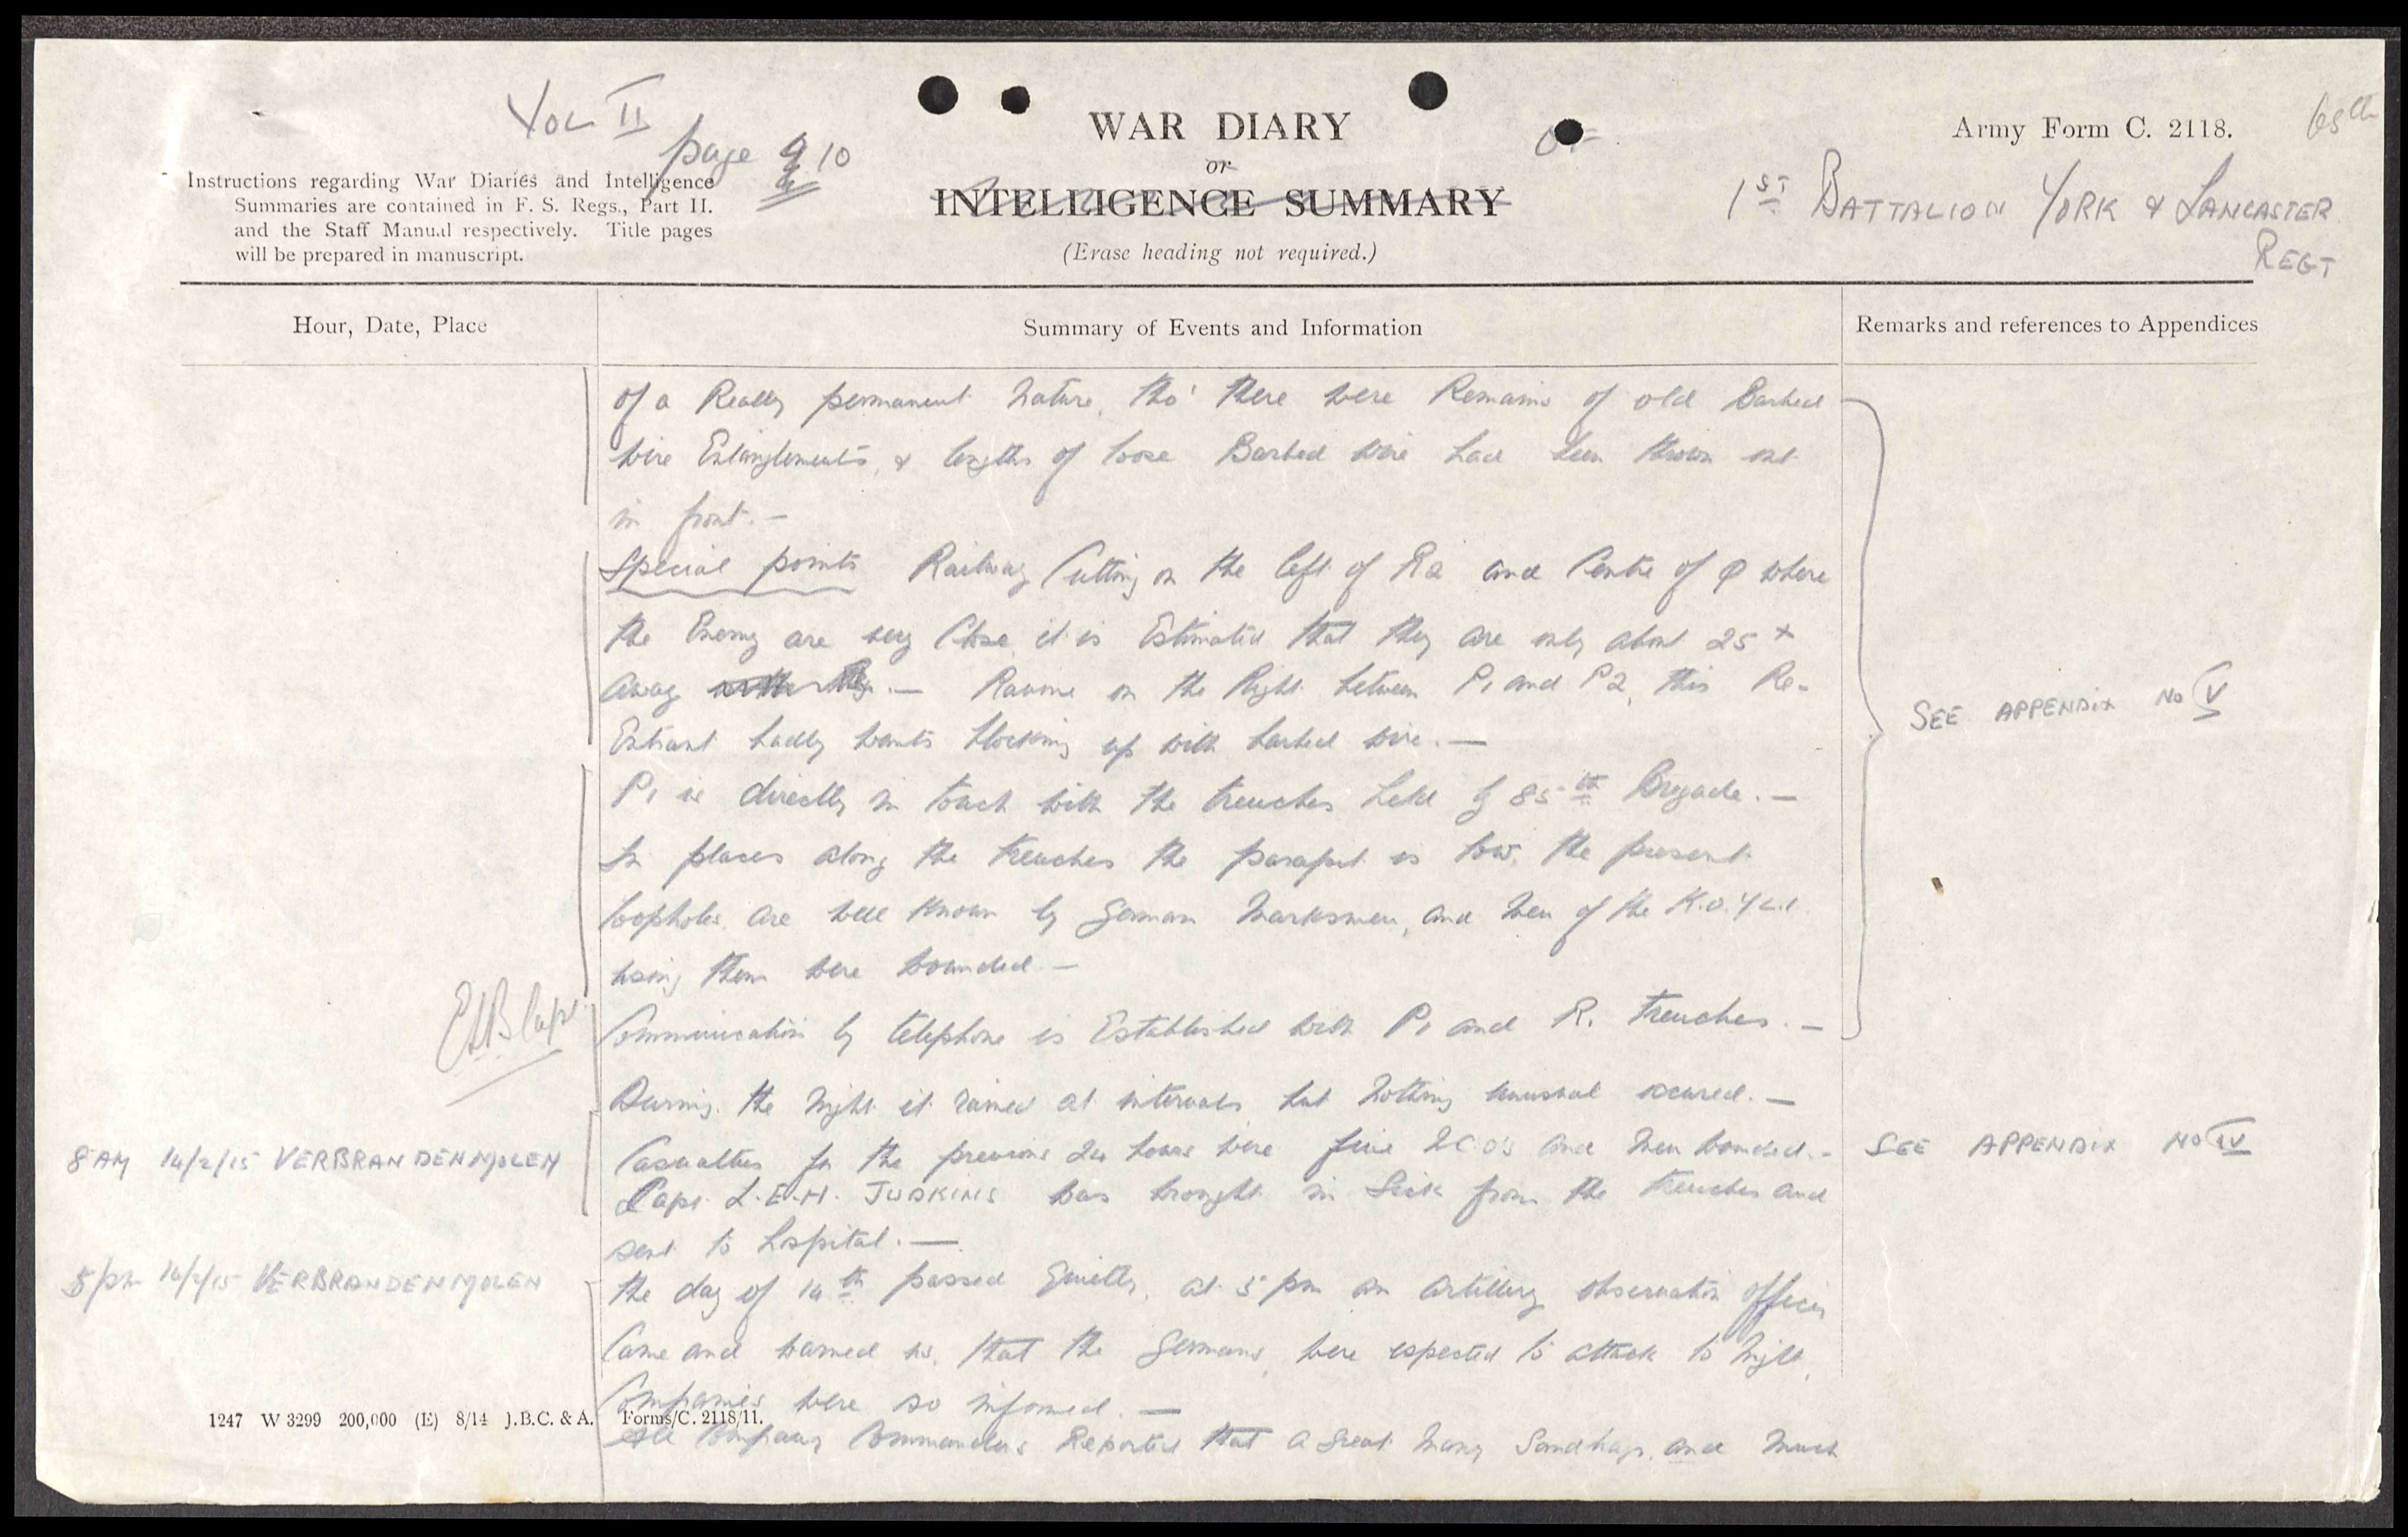 Vol II
page 10
WAR DIARY
or
INTELLIGENCE SUMMARY
(Erase heading not required.)
Army Form C. 2118.
65th
1st BATTALION YORK & LANCASTER
REGT
Instructions regarding War Diaries and Intelligence
Summaries are contained in F. S. Regs., Part II.
and the Staff Manual respectively. Title pages
will be prepared in manuscript.
Hour, Date, Place
Summary of Events and Information
Remarks and references to Appendices
of a Really permanent Nature, tho' there were Remains of old Barbed
wire Entanglements, & lengths of loose Barbed wire had been thrown out
in front. —
Special points Railway Cutting on the left of R2 and Centre of P where
the Enemy are very Close, it is Estimated that they are only about 25 x
away — Ravine on the Right between P1 and P2, this Re-
Entrant badly wants blocking up with barbed wire. —
SEE APPENDIX No V
P1 is directly in touch with the trenches held by 85th Brigade. —
In places along the trenches the parapet is low, the present
loopholes are well known by German Marksmen, and Men of the K.O.Y.L.I.
using them were wounded. —
Communication by telephone is Established with P1 and R1 trenches. —
During the Night it rained at intervals but Nothing unusual occured. —
8 AM 14/2/15 VERBRANDENMOLEN
Casualties for the previous 24 hours were five N.C.O's and Men wounded. -
SEE APPENDIX No IV
Capt. L.E.H. JUDKINS was brought in Sick from the trenches and
sent to hospital. —
5 pm 14/2/15 VERBRANDENMOLEN
the day of 14th passed Quietly, at 5 pm an Artillery observation officer
Came and warned us, that the Germans were expected to attack to Night,
Companies were so informed. —
1247 W 3299 200,000 (E) 8/14 J.B.C. & A. Forms/C. 2118/11.
All Company Commanders Reported that a Great Many Sandbags, and Much